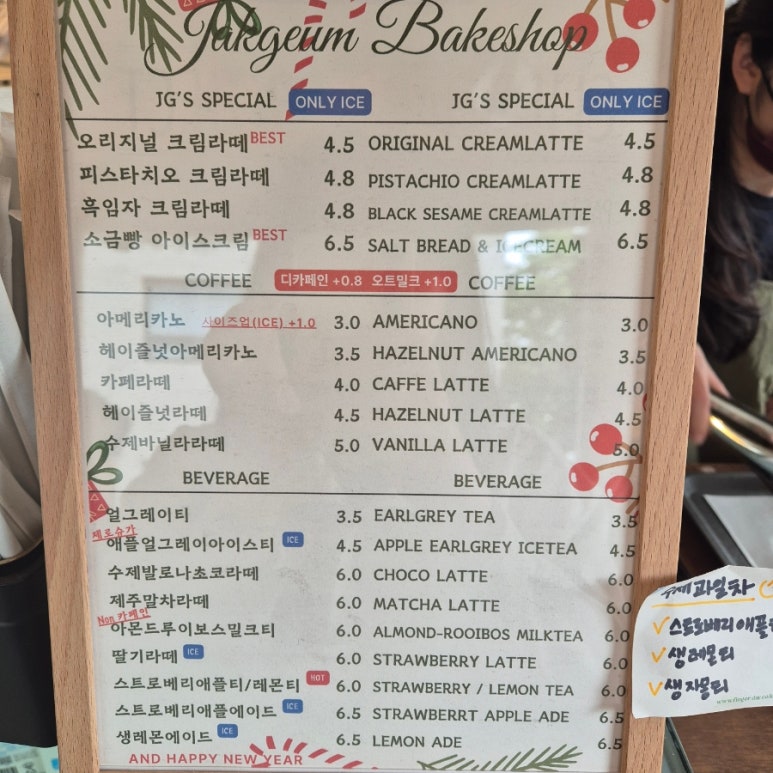 Jakgeum Bakeshop
JG'S SPECIAL ONLY ICE JG'S SPECIAL ONLY ICE
오리지널 크림라떼 BEST 4.5 ORIGINAL CREAMLATTE 4.5
피스타치오 크림라떼 4.8 PISTACHIO CREAMLATTE 4.8
흑임자 크림라떼 4.8 BLACK SESAME CREAMLATTE 4.8
소금빵 아이스크림 BEST 6.5 SALT BREAD & ICECREAM 6.5
COFFEE 디카페인 +0.8 오트밀크 +1.0 COFFEE
아메리카노 사이즈업(ICE) +1.0 3.0 AMERICANO 3.0
헤이즐넛아메리카노 3.5 HAZELNUT AMERICANO 3.5
카페라떼 4.0 CAFFE LATTE 4.0
헤이즐넛라떼 4.5 HAZELNUT LATTE 4.5
수제바닐라라떼 5.0 VANILLA LATTE 5.0
BEVERAGE BEVERAGE
얼그레이티 3.5 EARLGREY TEA 3.5
제로슈가
애플얼그레이아이스티 ICE 4.5 APPLE EARLGREY ICETEA 4.5
수제발로나초코라떼 6.0 CHOCO LATTE 6.0
제주말차라떼 6.0 MATCHA LATTE 6.0
Non 카페인
아몬드루이보스밀크티 6.0 ALMOND-ROOIBOS MILKTEA 6.0
딸기라떼 ICE 6.0 STRAWBERRY LATTE 6.0
스트로베리애플티/레몬티 HOT 6.0 STRAWBERRY / LEMON TEA 6.0
스트로베리애플에이드 ICE 6.5 STRAWBERRT APPLE ADE 6.5
생레몬에이드 ICE 6.5 LEMON ADE 6.5
AND HAPPY NEW YEAR
수제과일차
스트로베리애플
생레몬티
생자몽티